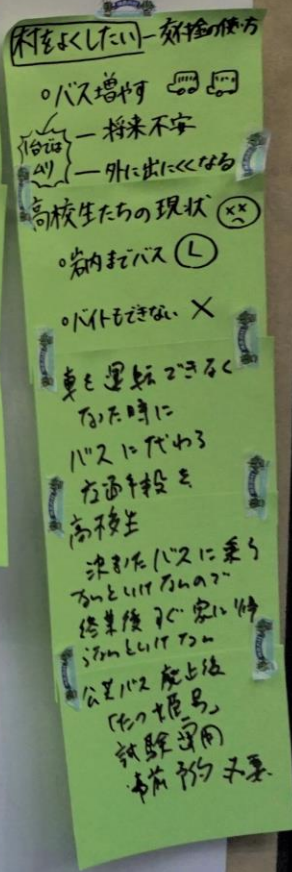 村をよくしたい ― 交付金の使い方
○バス増やす
1台ではムリ
― 将来不安
― 外に出にくくなる
高校生たちの現状
○岩内までバス Ⓛ
○バイトもできない ×
車を運転できなく
なった時に
バスに代わる
交通手段を
高校生
決まったバスに乗ら
ないといけないので
終業後すぐ家に帰
らないといけない
公共バス廃止後
「たつ姫号」
試験運用
事前予約 必要